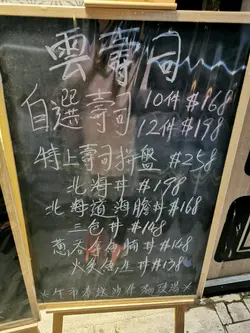 雲壽司
自選壽司 10件 $168
12件 $198
特上壽司拼盤 $258
北海丼 $198
北海道海膽丼 $168
三色丼 $148
蔥吞拿魚腩丼 $148
火炙 丼 $138